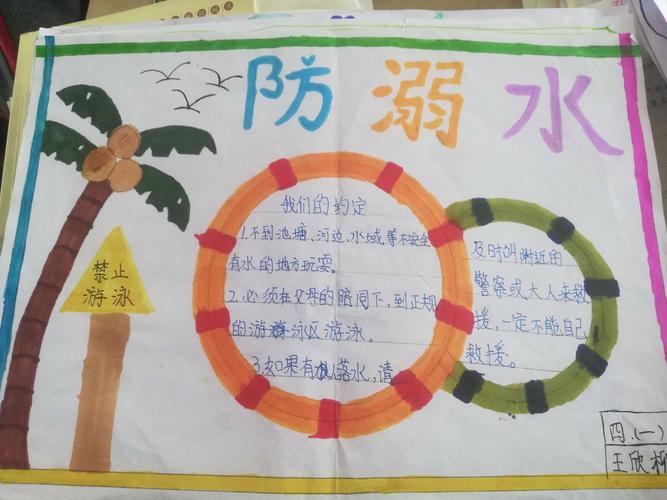 防溺水
我们的约定
1.不到池塘、河边、水域等不安全
有水的地方玩耍。
2.必须在父母的陪同下,到正规
的游泳区游泳。
3.如果有人落水,请
及时叫附近的
警察或大人来救
援,一定不能自己
救援。
禁止
游泳
四.(一)
王欣柳